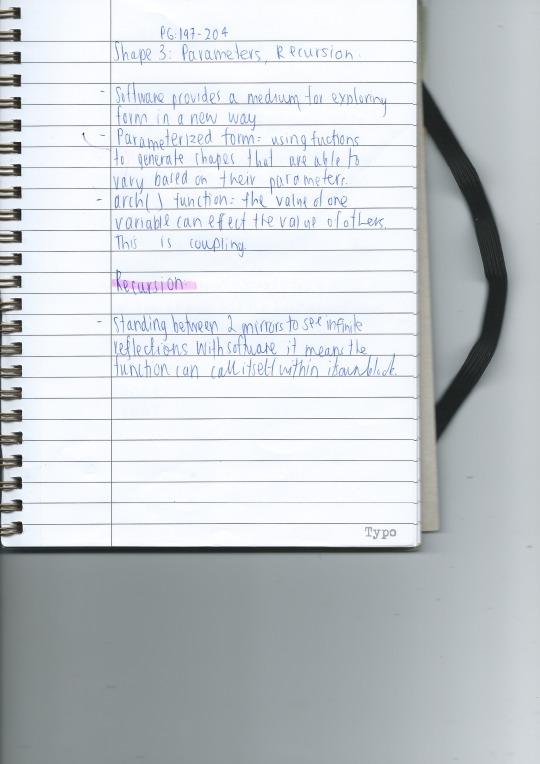 PG:197-204
Shape 3: Parameters, Recursion.
- Software provides a medium for exploring
form in a new way
- Parameterized form: using fuctions
to generate shapes that are able to
vary based on their parameters.
- arch() function: the value of one
variable can effect the value of others.
This is coupling.
Recursion.
- standing between 2 mirrors to see infinite
reflections with software it means the
function can call itself within its own block.
Typo